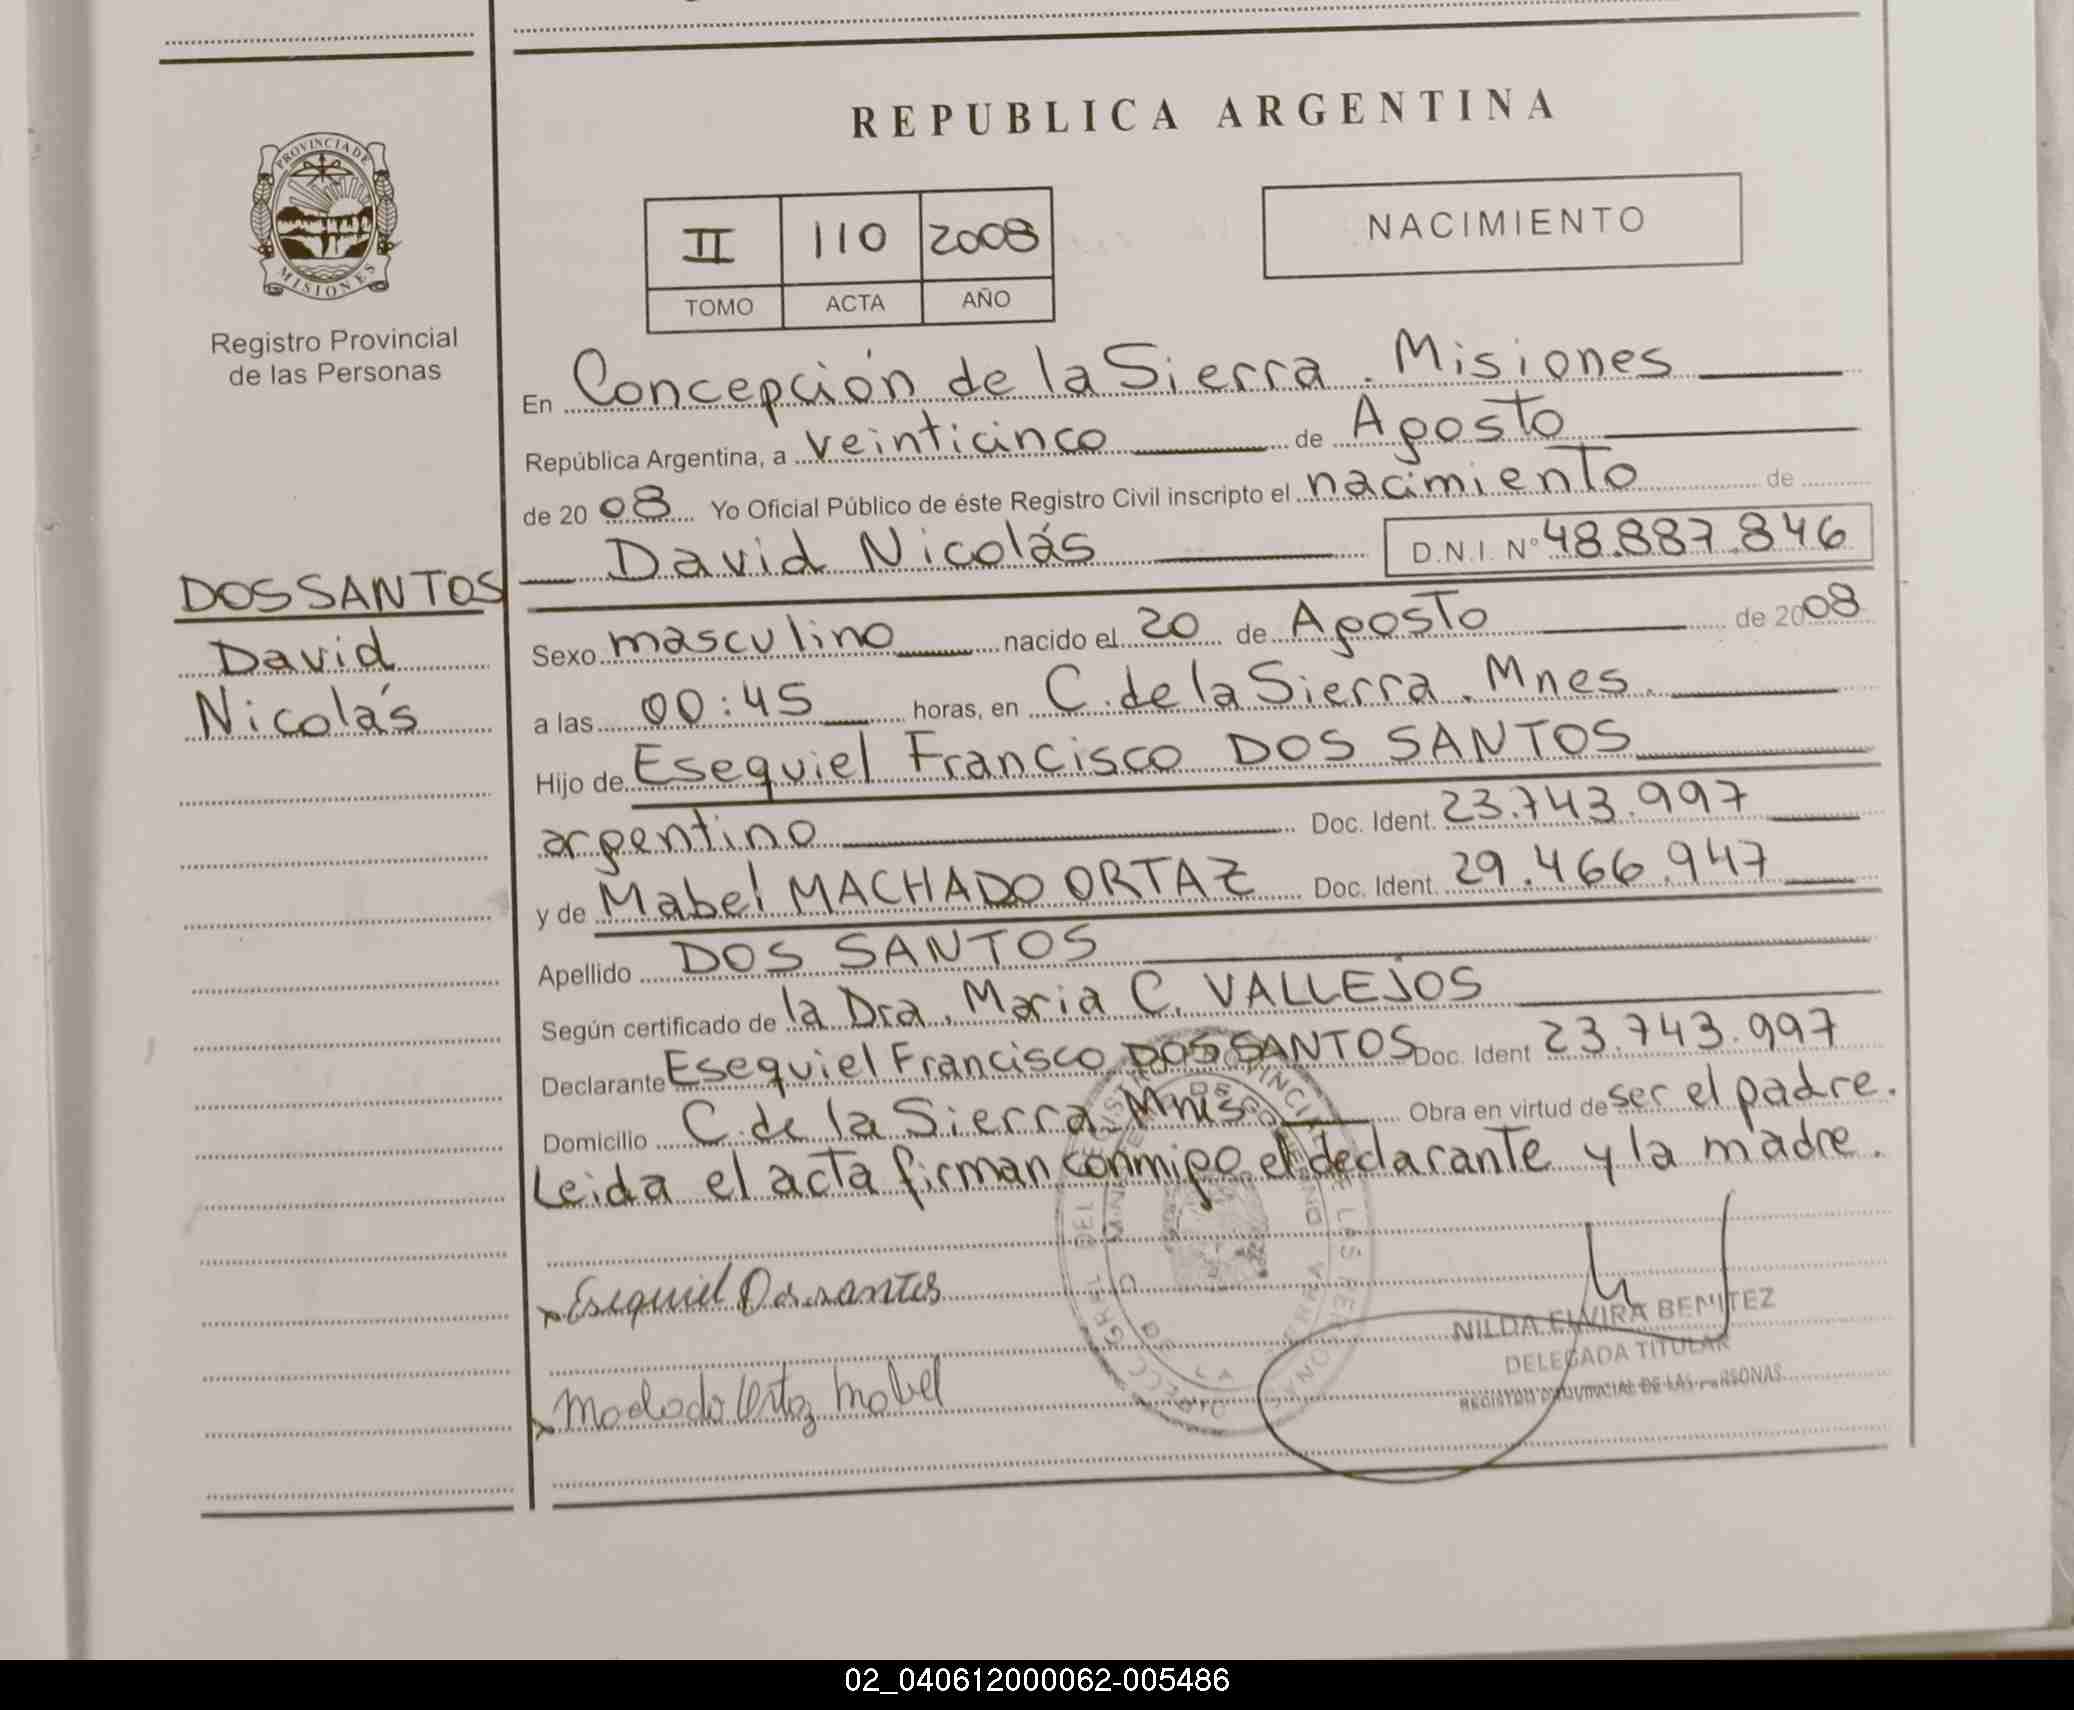 REPUBLICA ARGENTINA
PROVINCIA DE
MISIONES
Registro Provincial
de las Personas
II 110 2008
TOMO ACTA AÑO
NACIMIENTO
En Concepción de la Sierra. Misiones
República Argentina, a veinticinco de Agosto
de 2008 Yo Oficial Público de éste Registro Civil inscripto el nacimiento de
David Nicolás D.N.I. Nº 48.887.846
DOS SANTOS
David
Nicolás
Sexo masculino nacido el 20 de Agosto de 2008
a las 00:45 horas, en C. de la Sierra. Mnes.
Hijo de Esequiel Francisco DOS SANTOS
argentino Doc. Ident. 23.743.997
y de Mabel MACHADO ORTAZ Doc. Ident. 29.466.947
Apellido DOS SANTOS
Según certificado de la Dra. Maria C. VALLEJOS
Declarante Esequiel Francisco DOS SANTOS Doc. Ident 23.743.997
Domicilio C. de la Sierra. Mnes Obra en virtud de ser el padre.
Leida el acta firman conmigo el declarante y la madre.
x Esequiel Dossantos
x Machado Ortaz Mabel
NILDA ELVIRA BENITEZ
DELEGADA TITULAR
REGISTRO PROVINCIAL DE LAS PERSONAS
02_040612000062-005486